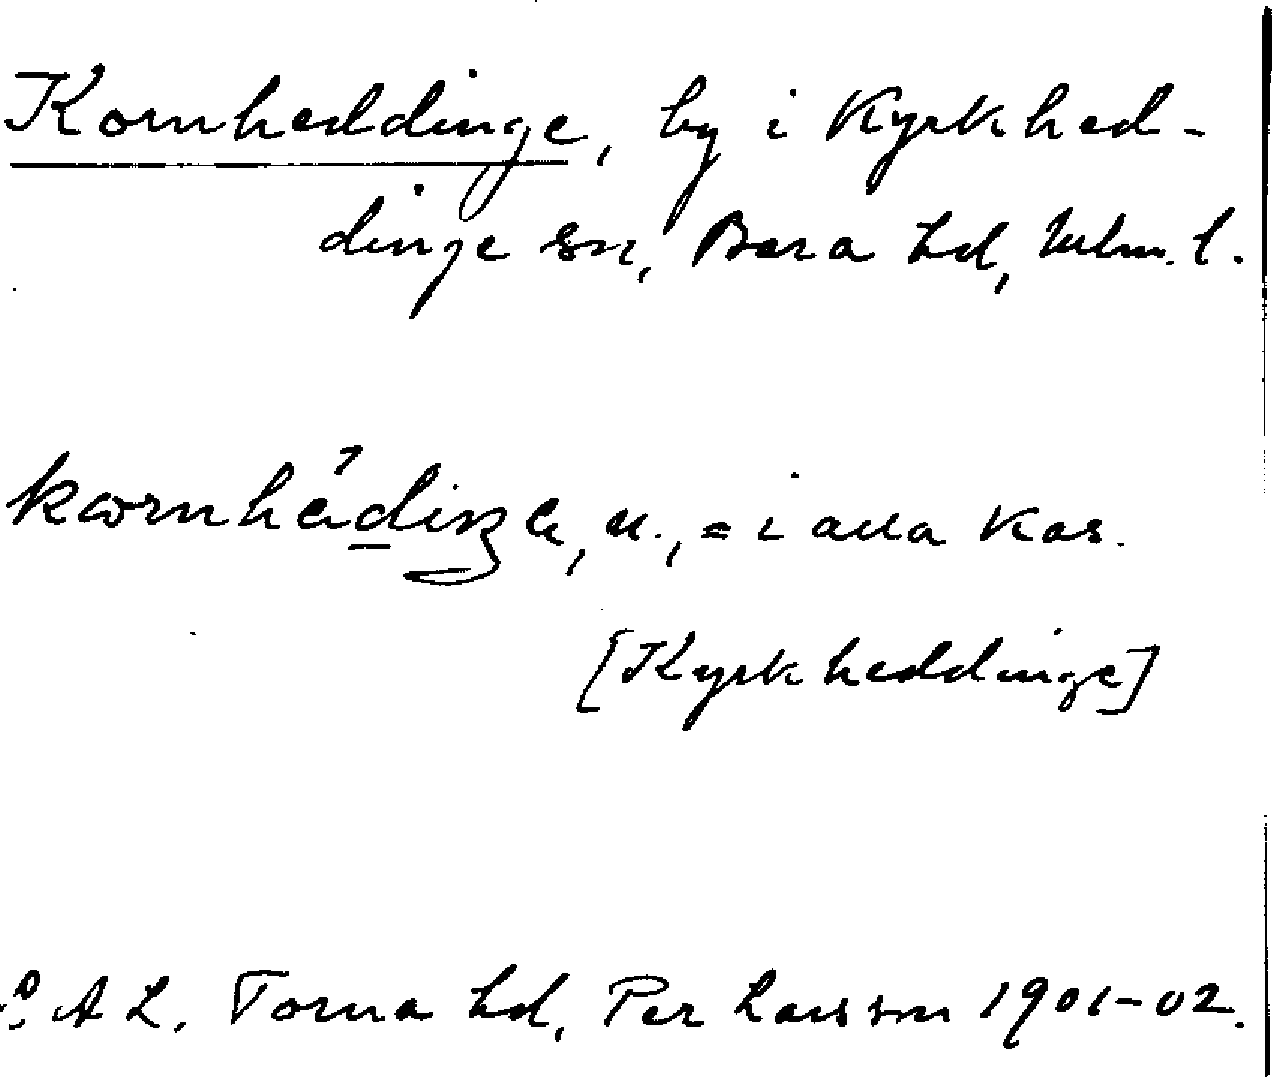 Kornheddinge, by i Kyrkhed-
dinge sn, Bara hd, Mlm. l.
n., = i alla kas.
[Kyrkheddinge]
A L. Torna hd, Per Larsson 1901-02.